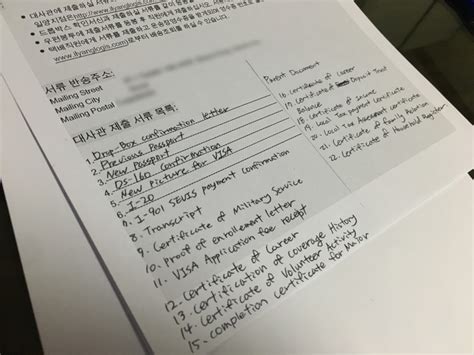 대사관에 제출하실 서류
택배직원에게 서류를 제출하고,
www.ilyanglogis.com)로부터 배송조회를 하실 수 있습니다.
서류 반송주소:
Mailing Street
Mailing City
Mailing Postal
대사관 제출 서류 목록:
1. Drop-Box confirmation letter
2. Previous Passport
3. New Passport
4. DS-160 confirmation
New picture for VISA
6. I-20
I-901 SEVIS payment confirmation
8. Transcript
9. Certificate of Military Service
10. Proof of enrollment letter
11. VISA Application fee receipt
12. Certificate of Career
13. Certification of coverage History
14. Certificate of Volunteer Activity
15. completion certificate for Major
Parent Document
certificate of Career
17. Certificate of Deposit Trust
Balance
18. Certificate of Income
19. Local Tax payment Certificate
20. Local Tax Assessment certificate
21. Certificate of family Relation
22. Certificate of Household Register